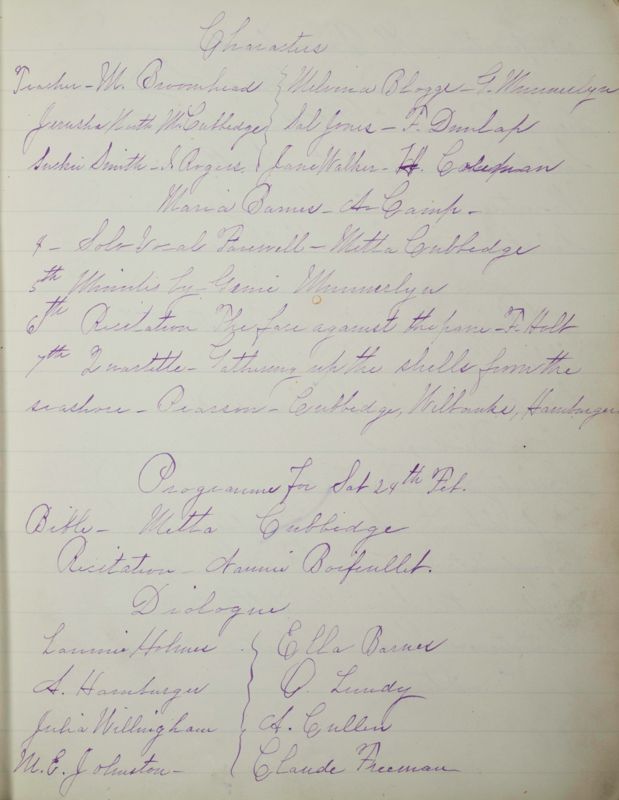 Characters
Teacher - M. Broomhead } Melvina Bloggs - G. Munnerlyn
Jerusha Keith McCubbedge } Sal Jones - F. Dunlap
Suckie Smith - I. Rogers. } Jane Walker - H. Coleman
Maria Barnes - A Camp -
4 - Solo Vocal Farewell - Metta Cubbedge
5th Minutes by Genie Munnerlyn
6th Recitation The face against the pane - F. Holt
7th Quartette - Gathering up the shells from the
seashore - Pearson - Cubbedge, Wilbanks, Hamburger
Programme for Sat 24th Feb.
Bible - Metta Cubbedge
Recitation - Nannie Boifeullet.
Dialogue
Lannie Holmes { Ella Barnes
A. Hamburger { O. Lundy
Julia Willingham { A. Cullen
M. E. Johnston - { Claude Freeman